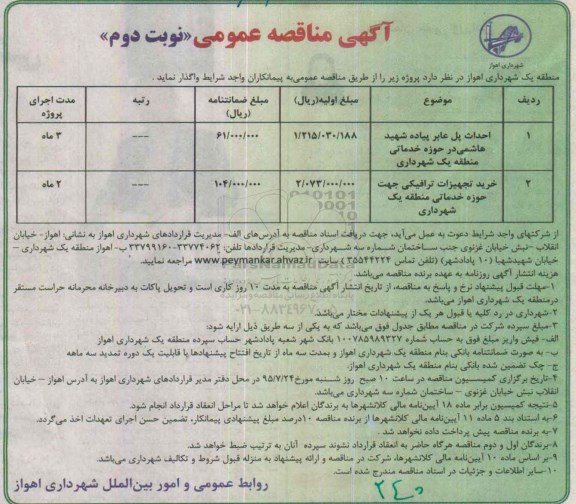 آگهی مناقصه عمومی «نوبت دوم»
شهرداری اهواز
منطقه یک شهرداری اهواز در نظر دارد پروژه زیر را از طریق مناقصه عمومی به پیمانکاران واجد شرایط واگذار نماید .
ردیف موضوع مبلغ اولیه(ریال) مبلغ ضمانتنامه (ریال) رتبه مدت اجرای پروژه
۱ احداث پل عابر پیاده شهید هاشمی در حوزه خدماتی منطقه یک شهرداری ۱/۲۱۵/۰۳۰/۱۸۸ ۶۱/۰۰۰/۰۰۰ --- ۳ ماه
۲ خرید تجهیزات ترافیکی جهت حوزه خدماتی منطقه یک شهرداری ۲/۰۷۳/۰۰۰/۰۰۰ ۱۰۴/۰۰۰/۰۰۰ --- ۲ ماه
از شرکتهای واجد شرایط دعوت به عمل می‌آید، جهت دریافت اسناد مناقصه به آدرس‌های الف- مدیریت قراردادهای شهرداری اهواز به نشانی: اهواز- خیابان
انقلاب -نبش خیابان غزنوی جنب ساختمان شماره سه شهرداری- مدیریت قراردادها تلفن: ۳۳۷۷۴۰۶۲-۳۳۷۹۹۱۶۰ ب- اهواز منطقه یک شهرداری –
خیابان شهیدشهبا (۱۰ پادادشهر) (تلفن تماس ۳۵۵۴۴۲۲۴ ) سایت www.peymankar.ahvaz.ir مراجعه نمایید.
هزینه انتشار آگهی روزنامه به عهده برنده مناقصه می‌باشد.
۱-مهلت قبول پیشنهاد نرخ و پاسخ به مناقصه، از تاریخ انتشار آگهی مناقصه به مدت ۱۰ روز کاری است و تحویل پاکات به دبیرخانه محرمانه حراست مستقر
درمنطقه یک شهرداری اهواز می‌باشد.
۲-شهرداری در رد کلیه یا قبول هر یک از پیشنهادات مختار می‌باشد.
۳-مبلغ سپرده شرکت در مناقصه مطابق جدول فوق می‌باشد که به یکی از سه طریق ذیل ارایه شود:
الف- فیش واریز مبلغ فوق به حساب شماره ۱۰۰۷۸۵۹۸۹۳۲۷ بانک شهر شعبه پادادشهر حساب سپرده منطقه یک شهرداری اهواز
ب- به صورت ضمانتنامه بانکی بنام منطقه یک شهرداری اهواز و بمدت سه ماه از تاریخ افتتاح پیشنهادها با قابلیت یک دوره تمدید سه ماهه
ج- چک تضمین شده بانکی بنام منطقه یک شهرداری اهواز.
۴-تاریخ برگزاری کمیسیون مناقصه در ساعت ۱۰ صبح روز شنبه مورخ ۹۵/۷/۲۴ در محل دفتر مدیر قراردادهای شهرداری اهواز به آدرس اهواز – خیابان
انقلاب نبش خیابان غزنوی – ساختمان شماره سه شهرداری می‌باشد.
۵-نتیجه کمیسیون برابر ماده ۱۸ آیین‌نامه مالی کلانشهرها به برندگان اعلام خواهد شد تا مراحل انعقاد قرارداد انجام شود.
۶-به استناد بند ۵ ماده ۱۱ آیین‌نامه مالی کلانشهرها از برنده مناقصه ۱۰درصد مبلغ پیشنهادی پیمانکار، تضمین حسن اجرای تعهدات اخذ می‌گردد.
۷-به برنده مناقصه پیش پرداخت داده نخواهد شد .
۸-برندگان اول و دوم مناقصه هرگاه حاضر به انعقاد قرارداد نشوند سپرده آنان به ترتیب ضبط خواهد شد.
۹-بر اساس ماده ۱۰ آیین‌نامه مالی کلانشهرها، شرکت در مناقصه و ارائه پیشنهاد به منزله قبول شروط و تکالیف شهرداری می‌باشد.
۱۰-سایر اطلاعات و جزئیات در اسناد مناقصه مندرج شده است.
روابط عمومی و امور بین‌الملل شهرداری اهواز